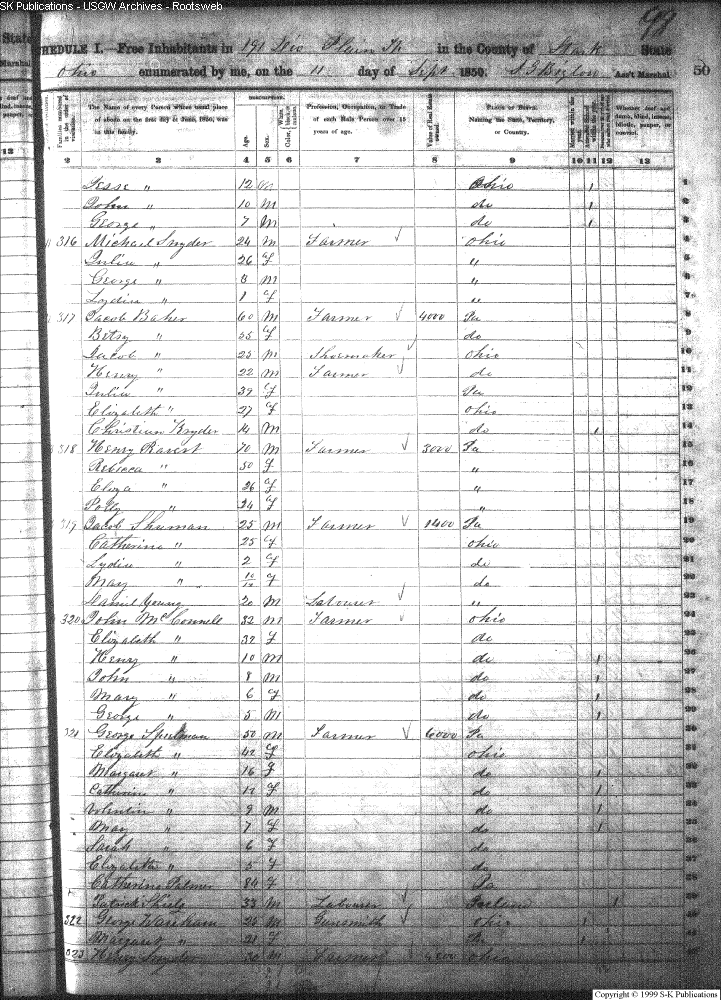 SK Publications - USGW Archives - Rootsweb
98
State
SCHEDULE I.—Free Inhabitants in 191 Dis Plain Tp in the County of Stark State
Ohio enumerated by me, on the 11 day of Sept 1850. S G Biglow Ass't Marshal 50
The Name of every Person whose usual place of abode on the first day of June, 1850, was in this family.
DESCRIPTION.
Age.
Sex.
Color, White, black, or mulatto.
Profession, Occupation, or Trade of each Male Person over 15 years of age.
Value of Real Estate owned.
PLACE OF BIRTH. Naming the State, Territory, or Country.
Whether deaf and dumb, blind, insane, idiotic, pauper, or convict.
2 3 4 5 6 7 8 9 10 11 12 13
Jesse " 12 M Ohio 1 1
John " 10 M do 1 2
George " 7 M do 1 3
316 Michael Snyder 24 M Farmer Ohio 4
Julia " 26 F " 5
George " 3 M " 6
Lydia " 1 F " 7
317 Jacob Baker 60 M Farmer 4000 Pa 8
Betsy " 55 F do 9
Jacob " 25 M Shoemaker Ohio 10
Henry " 22 M Farmer do 11
Julia " 39 F Pa 12
Elizabeth " 27 F Ohio 13
Christian Kryder 14 M do 1 14
318 Henry Ravert 70 M Farmer 3000 Pa 15
Rebecca " 50 F " 16
Eliza " 26 F " 17
Polly " 24 F " 18
319 Jacob Shuman 25 M Farmer 1400 Pa 19
Catharine " 25 F Ohio 20
Lydia " 2 F do 21
May " 10/12 F do 22
Daniel Young 20 M Labourer " 23
320 John McConnell 32 M Farmer Ohio 24
Elizabeth " 32 F do 25
Henry " 10 M do 1 26
John " 8 M do 1 27
Mary " 6 F do 1 28
George " 5 M do 1 29
321 George Spielman 50 M Farmer 6000 Pa 30
Elizabeth " 42 F Ohio 31
Margaret " 16 F do 1 32
Catharine " 11 F do 1 33
Valentin " 9 M do 1 34
May " 7 F do 1 35
Sarah " 6 F do 36
Elizabeth " 5 F do 37
Catharine Palmer 84 F Pa 38
Patrick Shiels 33 M Labourer Ireland 1 39
322 George Warcham 26 M Gunsmith Ohio 1 40
Margaret " 21 F Pa 1 41
323 Henry Snyder 30 M Farmer Ohio 42
Copyright © 1999 S-K Publications